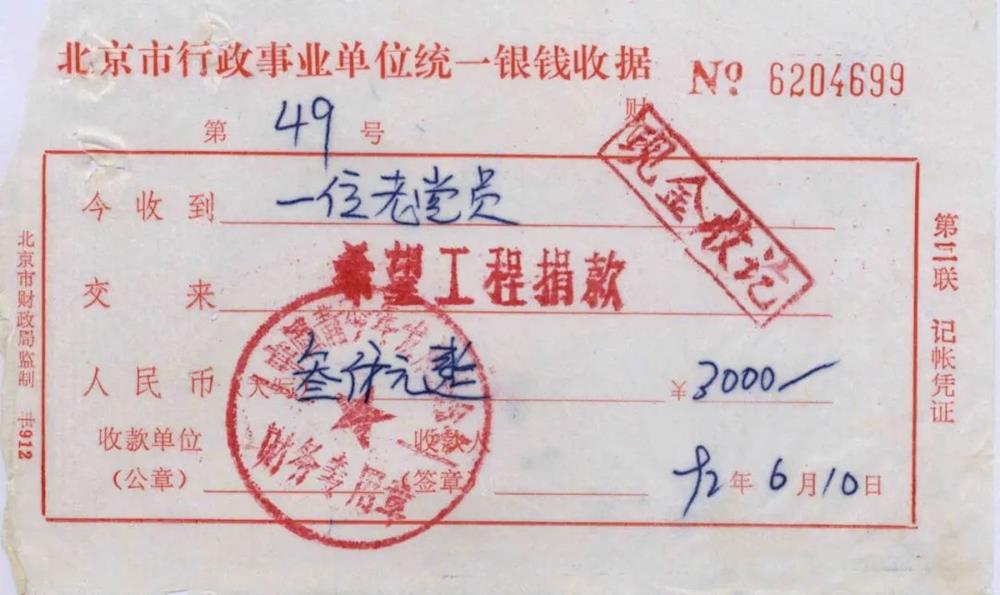 北京市行政事业单位统一银钱收据
Nº 6204699
第 49 号
财
现金收讫
今收到 一位老党员
交来 希望工程捐款
人民币(大写) 叁仟元整 ¥3000—
收款单位 收款人
(公章) (签章) 92年6月10日
财务专用章
北京市财政局监制
912
第三联 记帐凭证